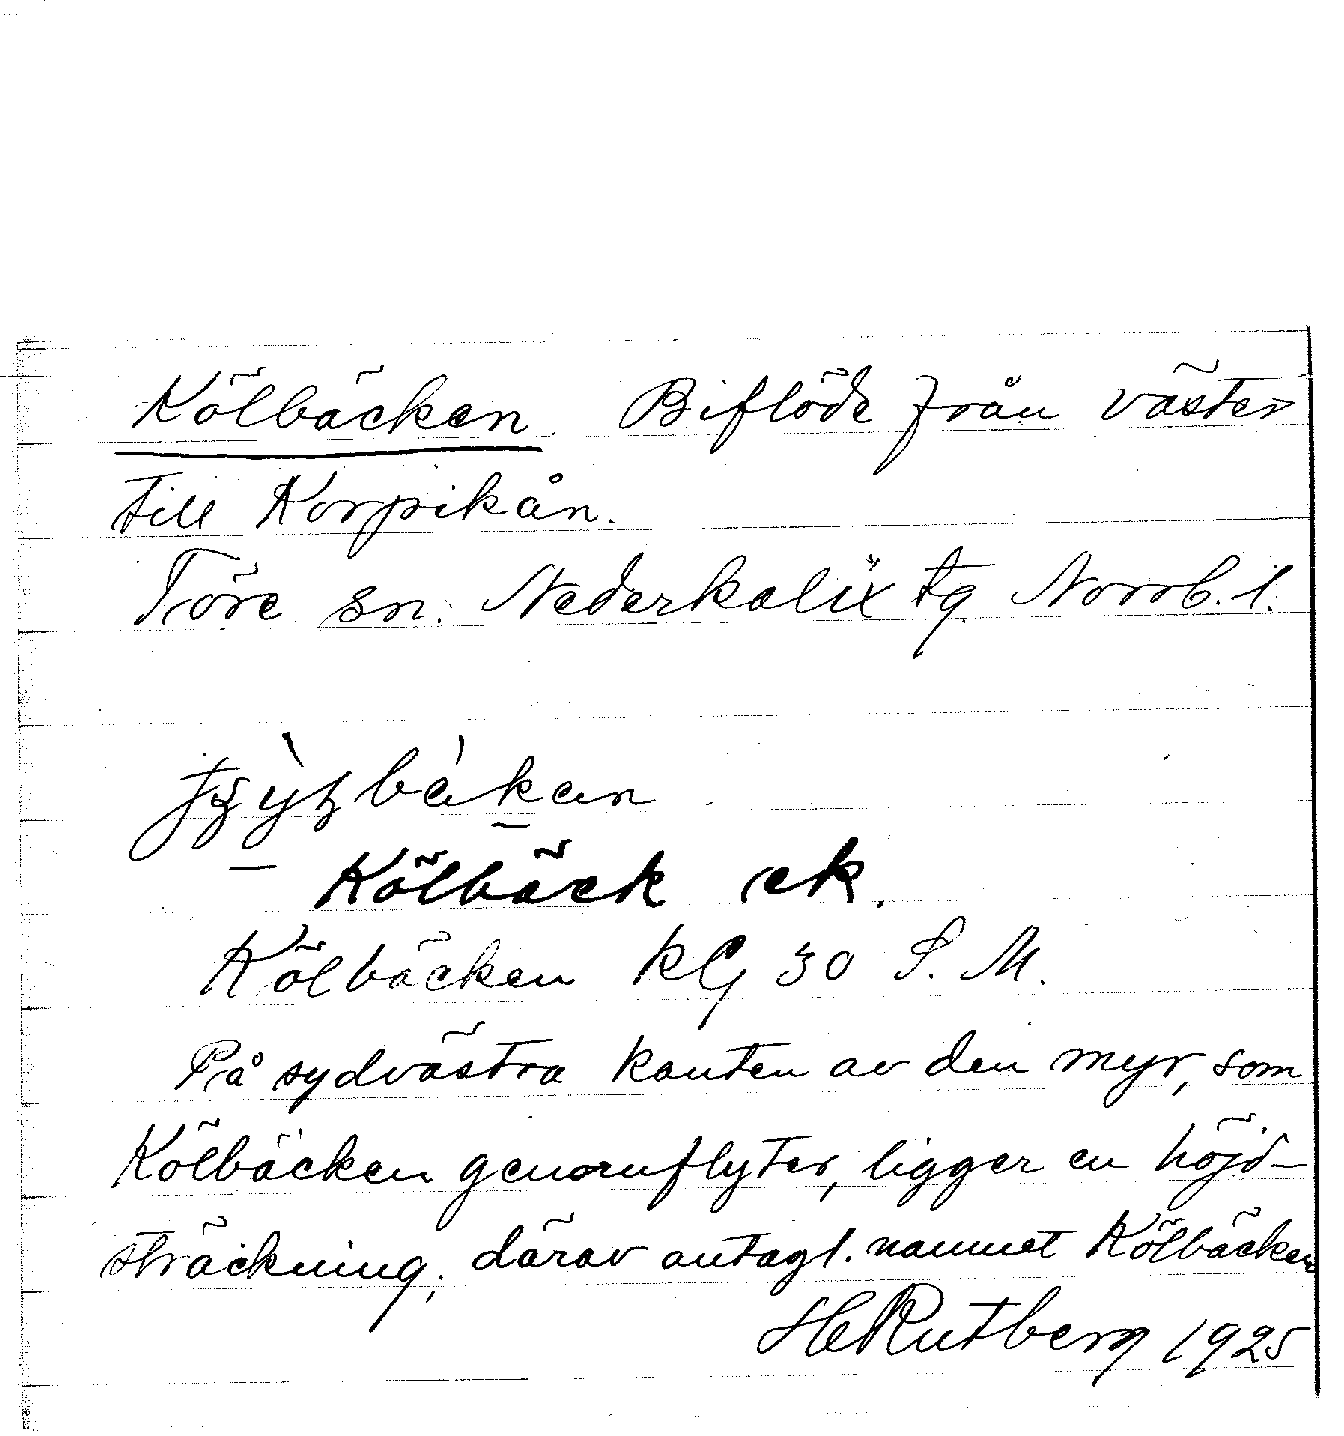 Kölbäcken Biflöde från väster
till Korpikån.
Töre sn. Nederkalix tg Norrb. l.
Kölbäck ek.
Kölbäcken KG 30 S. M.
På sydvästra kanten av den myr, som
Kölbäcken genomflyter, ligger en höjd-
sträckning, därav antagl. namnet Kölbäcken
HERutberg 1925